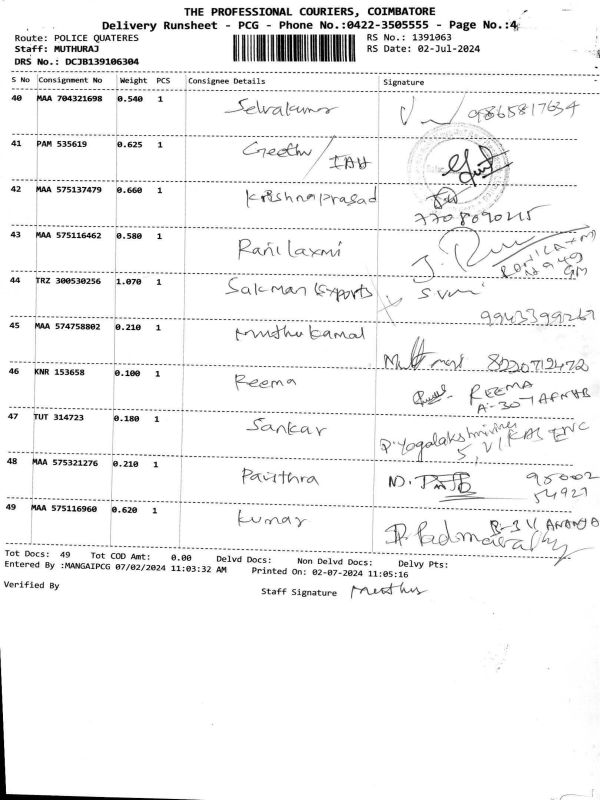 THE PROFESSIONAL COURIERS, COIMBATORE
Delivery Runsheet - PCG - Phone No.:0422-3505555 - Page No.:4
Route: POLICE QUATERES RS No.: 1391063
Staff: MUTHURAJ RS Date: 02-Jul-2024
DRS No.: DCJB139106304
S No Consignment No Weight PCS Consignee Details Signature
40 MAA 704321698 0.540 1 Selvakumar 9865817634
41 PAM 535619 0.625 1 Geethu / IAH
42 MAA 575137479 0.660 1 Krishnaprasad
7708090215
43 MAA 575116462 0.580 1 Rani laxmi
44 TRZ 300530256 1.070 1 Salman Exports
9943399269
45 MAA 574758802 0.210 1 Muthukamal
8220712472
46 KNR 153658 0.100 1 Reema REEMA
47 TUT 314723 0.180 1 Sankar
48 MAA 575321276 0.210 1 Pavithra
49 MAA 575116960 0.620 1 Kumar
Tot Docs: 49 Tot COD Amt: 0.00 Delvd Docs: Non Delvd Docs: Delvy Pts:
Entered By :MANGAIPCG 07/02/2024 11:03:32 AM Printed On: 02-07-2024 11:05:16
Verified By Staff Signature